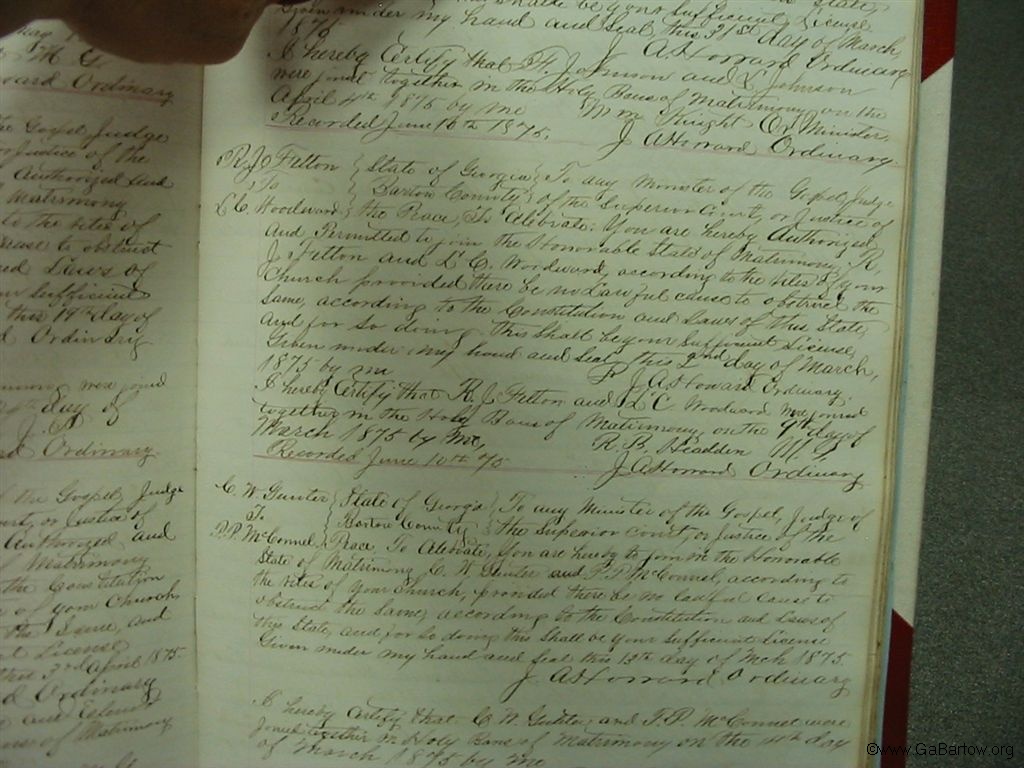 May
M G
ward Ordinary
The Gospel Judge
or Justice of the
Authorized and
Matrimony
to the rites of
cause to obstruct
and Laws of
our Sufficient
this 19th day of
d Ordinary
mony were joined
4th day of
J. A.
rd Ordinary
of the Gospel, Judge
ourt, or Justice of
Authorized and
of Matrimony
the Constitution
of your Church
the Same, and
nt License
this 3rd April 1875
d Ordinary
of Matrimony
State,
Given under my hand and seal, this 31st day of March,
1875 J. A. Howard Ordinary
I hereby Certify that F. Johnson and L Johnson
were joined together in the Holy Bans of Matrimony on the
April 4th 1875 by me Wm Hight Or Minister,
Recorded June 10th 1875. J A Howard Ordinary
R. J. Felton State of Georgia To any Minister of the Gospel, Judge
To Bartow County of the Superior Court, or Justice of
L. C. Woodward the Peace, To Celebrate; You are hereby Authorized
and Permitted to join the Honorable State of Matrimony R.
J. Felton and L. C. Woodward, according to the rites of your
Church provided there be no Lawful cause to obstruct the
Same, according to the Constitution and Laws of this State,
and for So doing this shall be your Sufficient License,
Given under my hand and Seal, this 2nd day of March,
1875 by me J. A Howard Ordinary.
I hereby Certify that R. J. Felton and L. C. Woodward were joined
together in the Holy Bans of Matrimony, on the 9th day of
March 1875 by Me, R. B. Headden M G
Recorded June 10th 75 J. A Howard Ordinary
C. W. Gunter State of Georgia To any Minister of the Gospel, Judge of
To Bartow County the Superior Court, or Justice of the
P. P. McConnel Peace, To Celebrate, You are hereby to join in the Honorable
State of Matrimony C. W. Gunter and P. P. McConnel, according to
the rites of Your Church, provided there be no lawful cause to
obstruct the Same, according to the Constitution and Laws of
this State, and for So doing this shall be your Sufficient License
Given under my hand and Seal this 13th day of Mch 1875.
J A Howard Ordinary
I hereby Certify that C. W. Gunter and P. P. McConnel were
joined together in Holy Bans of Matrimony on the 14th day
of March 1875 by me
©www.GaBartow.org